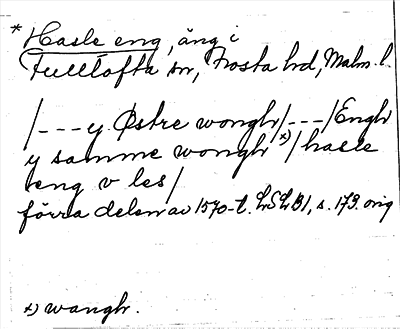 * Hasle eng, äng i
Fulltofta sn, Frosta hd, Malm. l.
/---y Østre wongh/---/Engh
y samme wongh x)/hasle
eng v les/
förra delen av 1570-t. LSLB1, s. 173. orig
x) wangh.